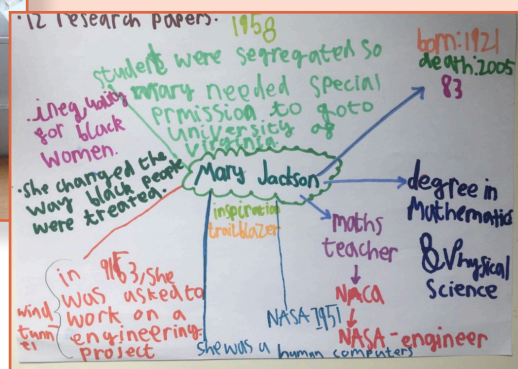 ·12 research papers.
1958
students were segregated so
mary needed special
prmission to goto
university of
virginia.
born:1921
death:2005
83
.inequality
for black
women.
·She changed the
way black people
were treated.
Mary Jackson
inspiration
trailblazer
degree in
Mathematics
& Physical
Science
maths
teacher
NACA
NASA-engineer
NASA 1951
she was a human computers
in 1953/she
was asked to
work on a
engineering
project
wind
tunn
el